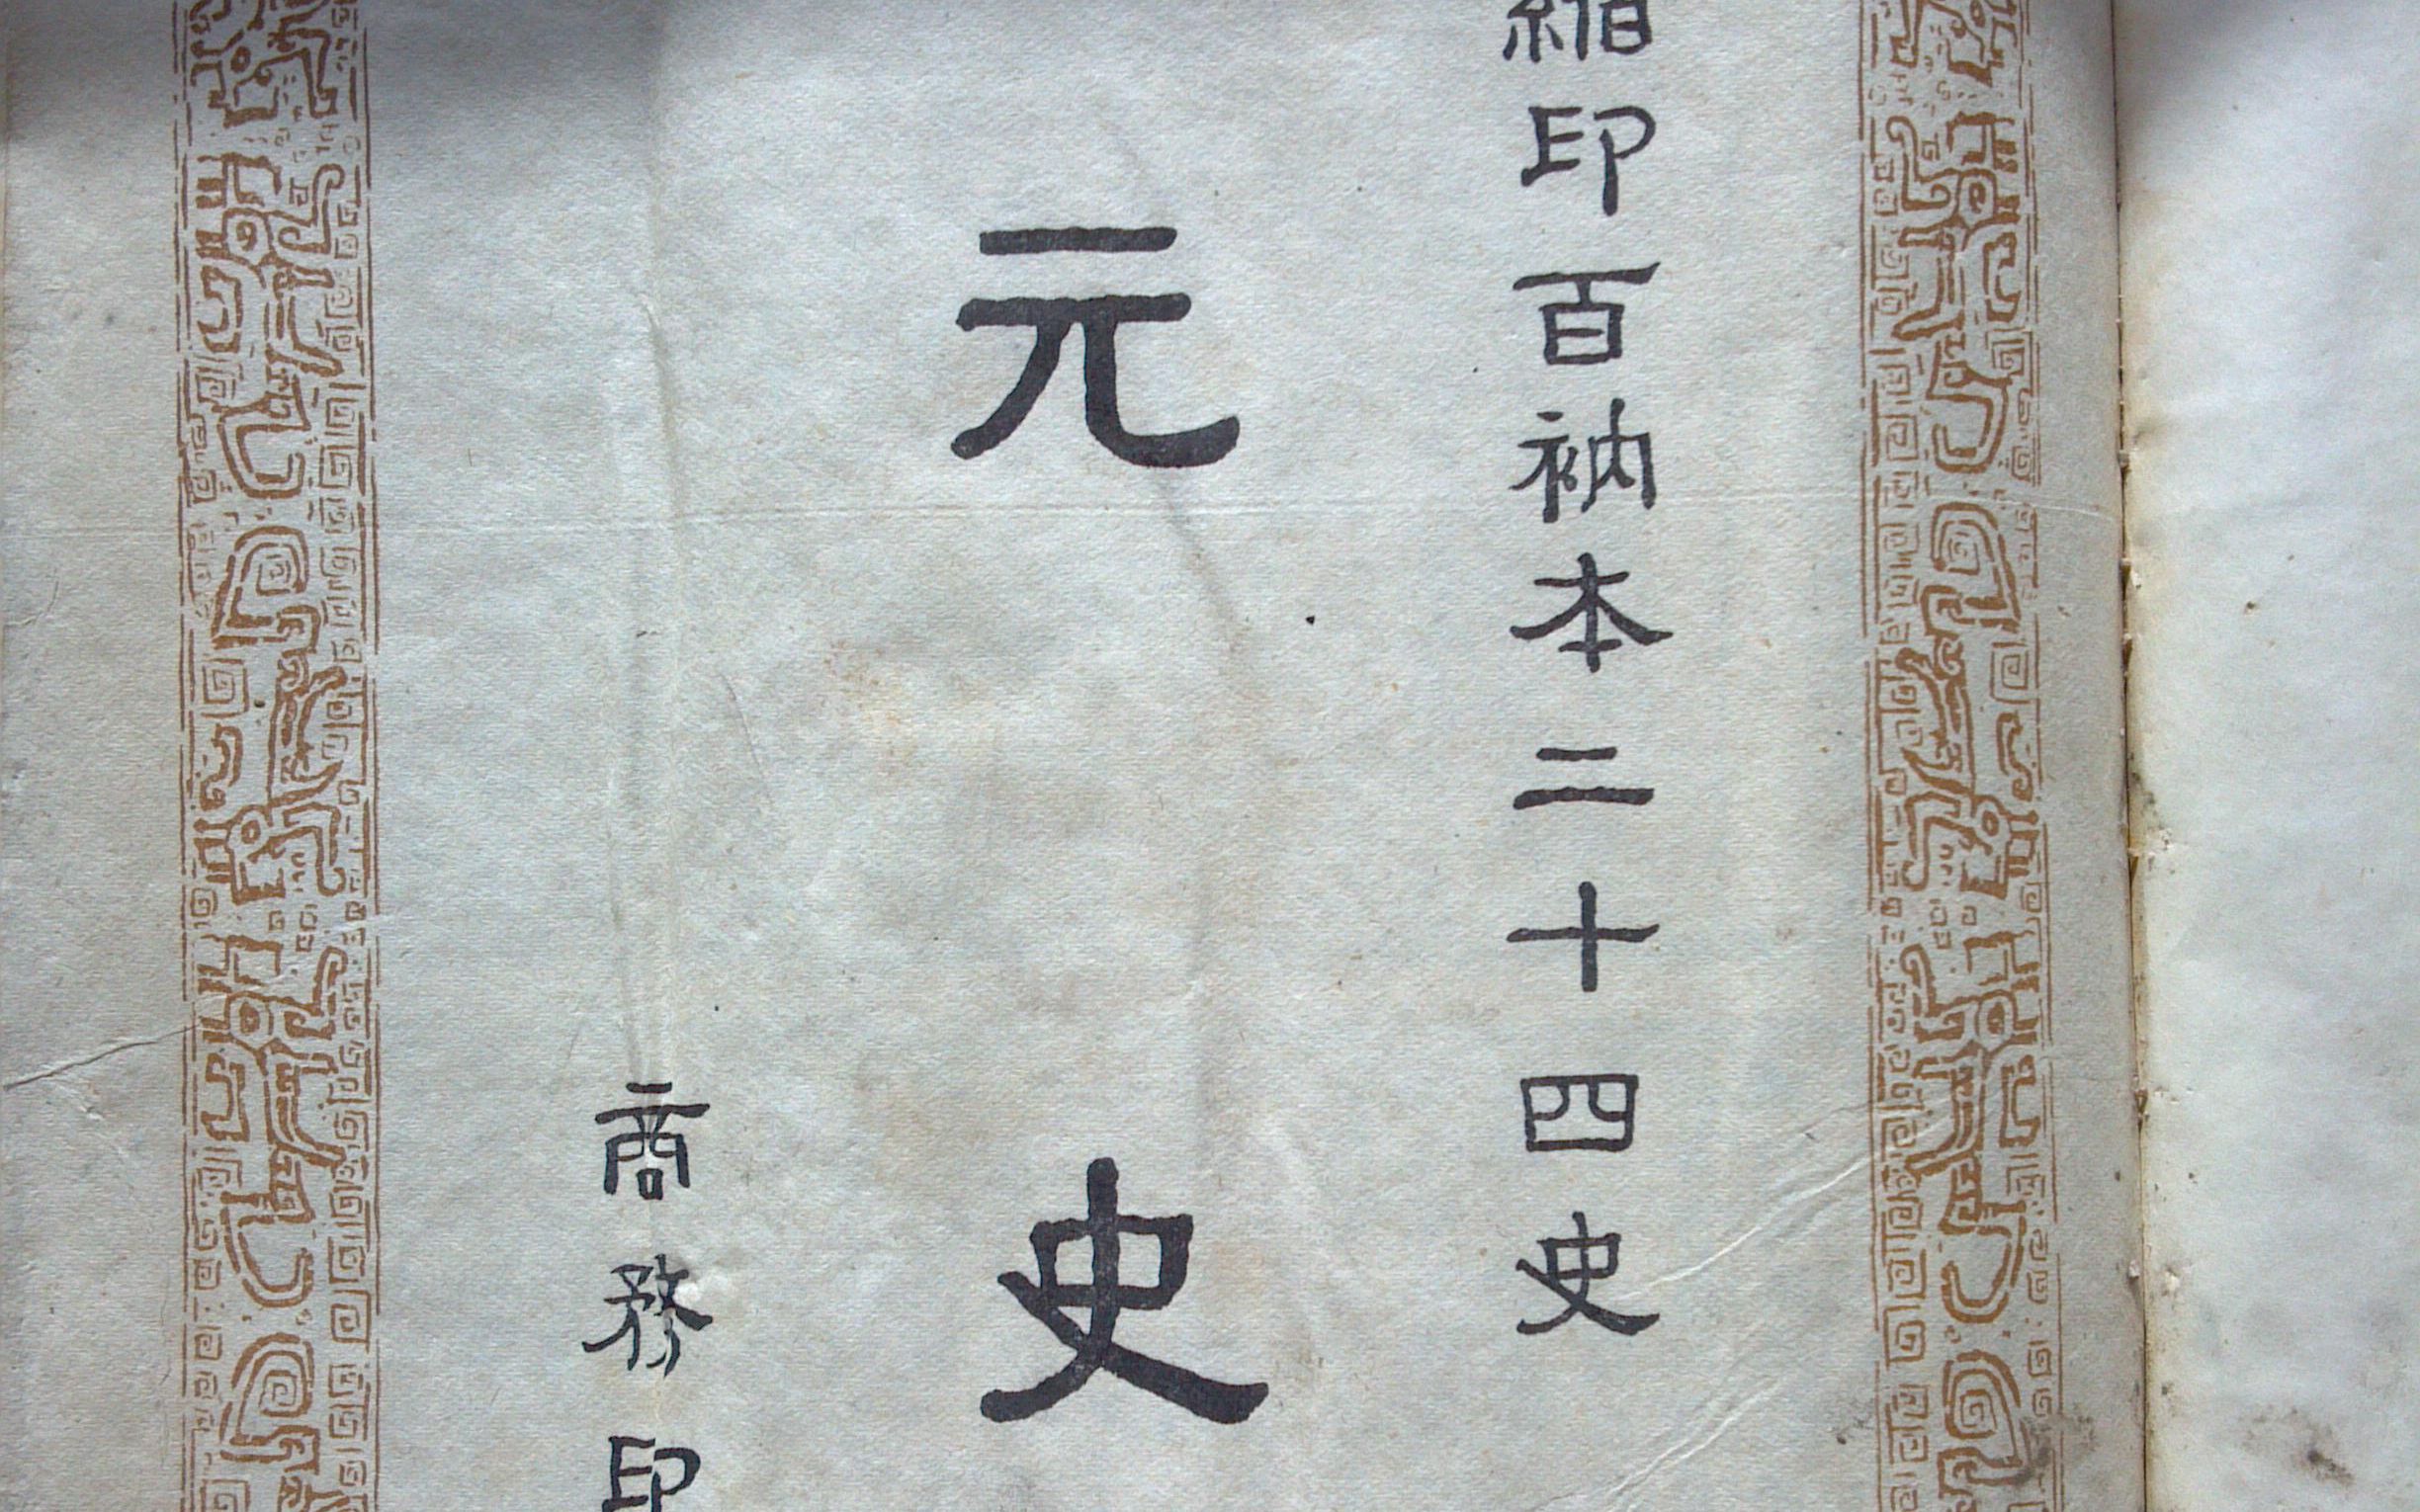 縮印百衲本二十四史
元史
商務印